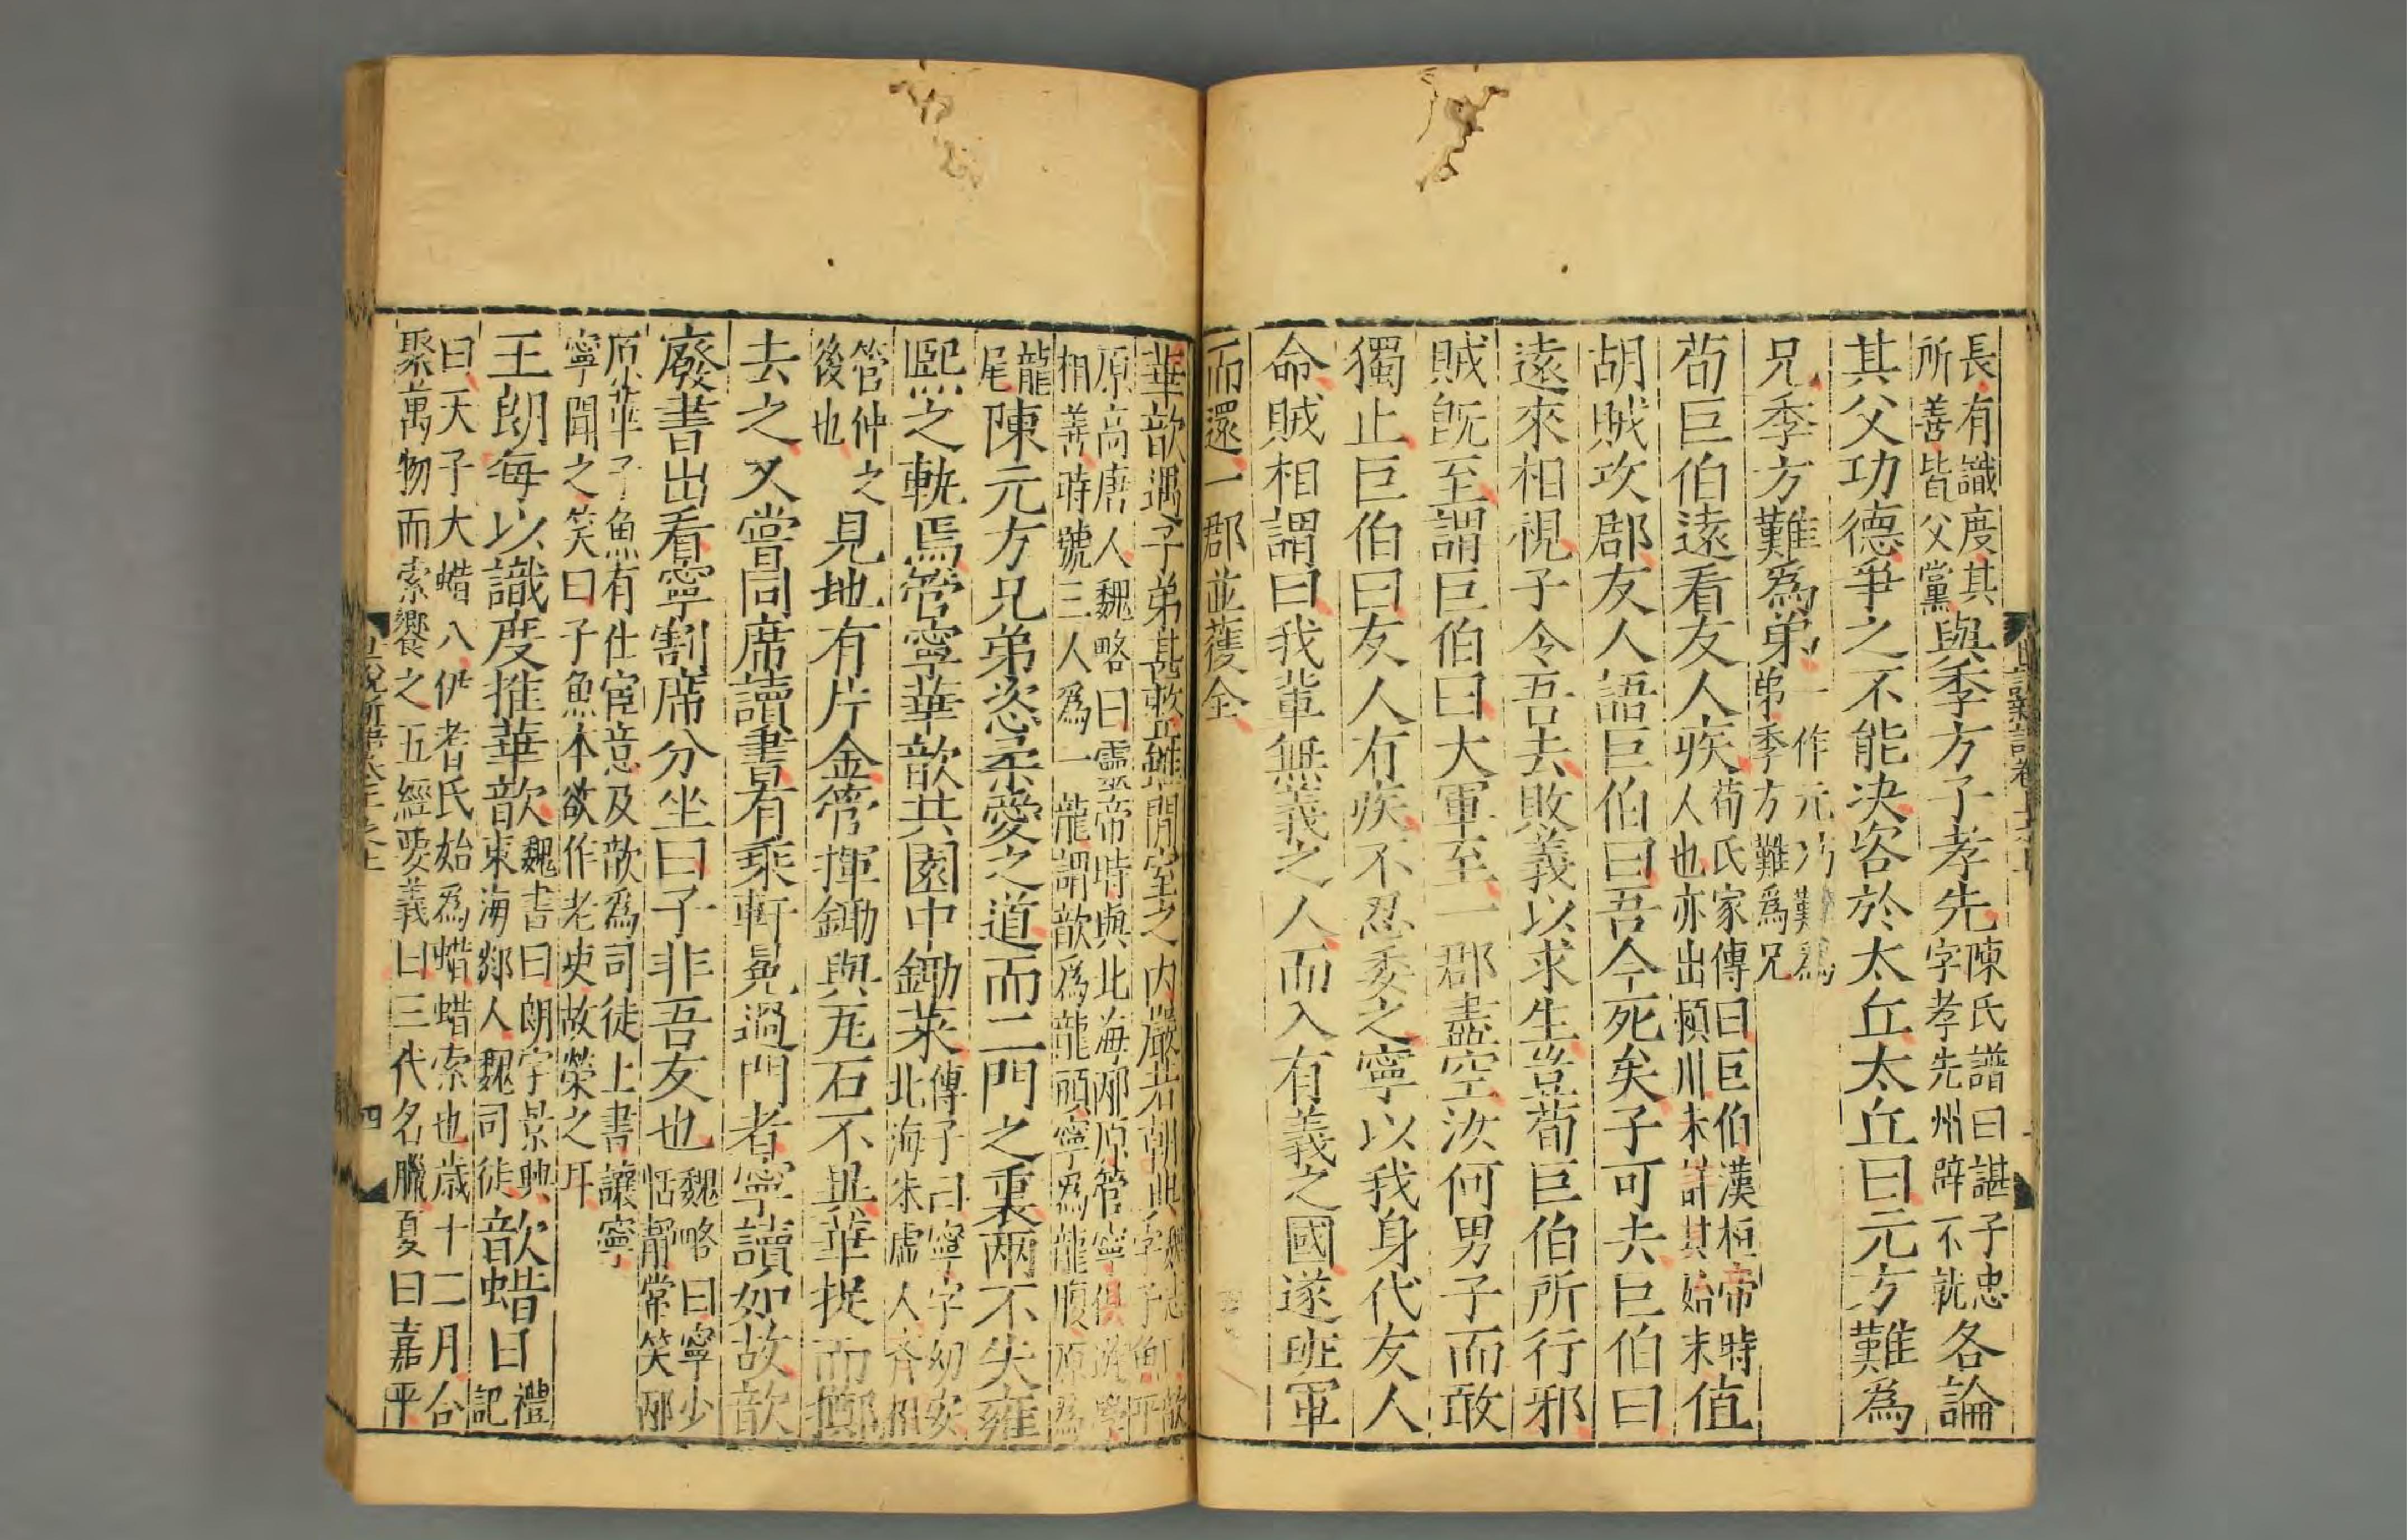 長有識度其
所善皆父黨與季方子孝先陳氏譜曰諶子忠
字孝先州辟不就各論
其父功德爭之不能决咨於太丘太丘曰元方難為
兄季方難爲弟一作元方難爲
弟季方難爲兄
荀巨伯遠看友人疾荀氏家傳曰巨伯漢桓帝時
人也亦出潁川未詳其始末值
胡賊攻郡友人語巨伯曰吾今死矣子可去巨伯曰
遠來相視子令吾去敗義以求生豈荀巨伯所行邪
賊旣至謂巨伯曰大軍至一郡盡空汝何男子而敢
獨止巨伯曰友人有疾不忍委之寧以我身代友人
命賊相謂曰我輩無義之人而入有義之國遂班軍
而還一郡並獲全
華歆遇子弟甚整雖閒室之内嚴若朝典魏志曰歆
字子魚平
原高唐人魏略曰靈帝時與北海邴原管寧俱遊學
相善時號三人爲一龍謂歆爲龍頭寧爲龍腹原爲
龍
尾陳元方兄弟恣柔愛之道而二門之裏兩不失雍
熙之軌焉管寧華歆共園中鋤菜傅子曰寧字幼安
北海朱虛人齊相
管仲之
後也見地有片金管揮鋤與瓦石不異華捉而擲
去之又嘗同席讀書有乘軒冕過門者寧讀如故歆
廢書出看寧割席分坐曰子非吾友也魏略曰寧少
恬靜常笑邴
原華子魚有仕宦意及歆爲司徒上書讓寧
寧聞之笑曰子魚本欲作老吏故榮之耳
王朗每以識度推華歆魏書曰朗字景興
東海郯人魏司徒歆蜡日禮
記
曰天子大蜡八伊耆氏始爲蜡蜡索也歲十二月合
聚萬物而索饗之五經要義曰三代名臘夏曰嘉平
四